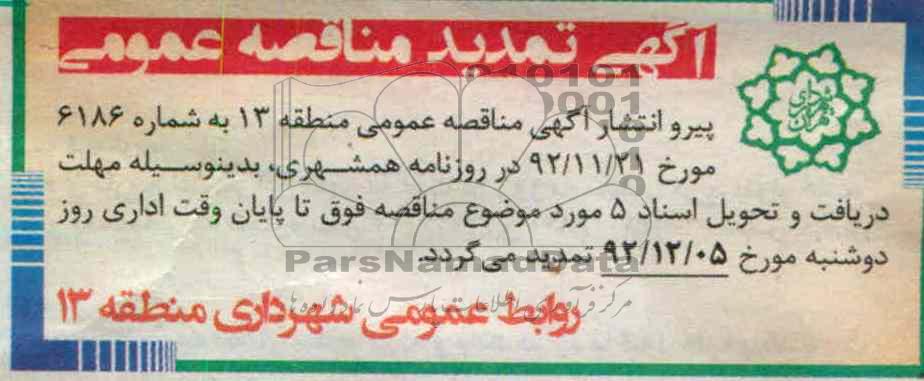 آگهی تمدید مناقصه عمومی
پیرو انتشار آگهی مناقصه عمومی منطقه ۱۳ به شماره ۶۱۸۶
مورخ ۹۲/۱۱/۲۱ در روزنامه همشهری، بدینوسیله مهلت
دریافت و تحویل اسناد ۵ مورد موضوع مناقصه فوق تا پایان وقت اداری روز
دوشنبه مورخ ۹۲/۱۲/۰۵ تمدید می گردد.
ParsNamadData
روابط عمومی شهرداری منطقه ۱۳